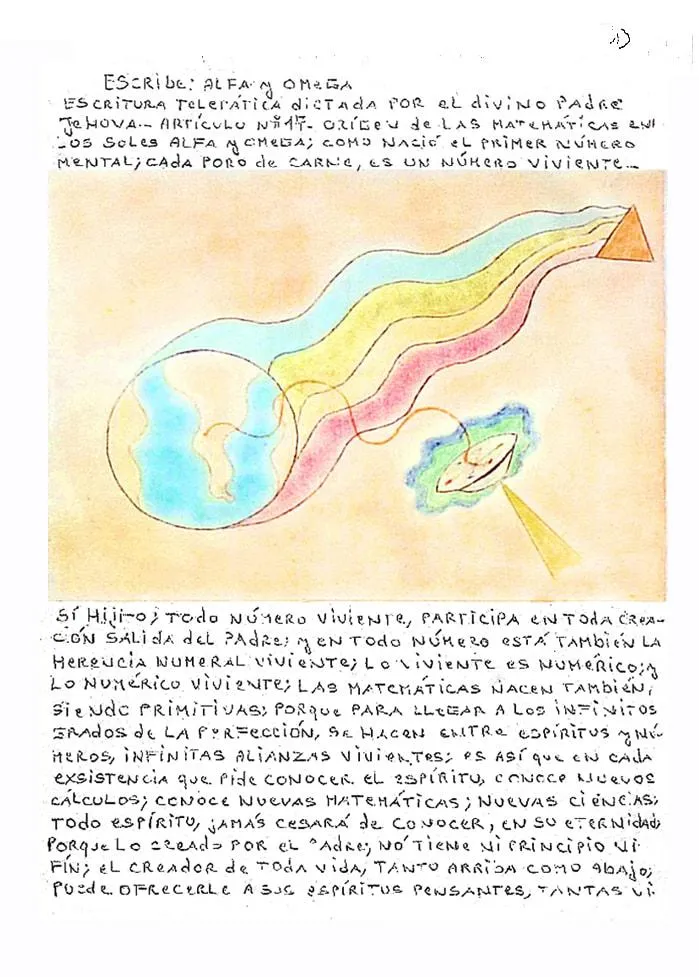 ESCRIBE: ALFA y OMEGA
ESCRITURA TELEPÁTICA dICTADA POR EL diVINO PADRE
JEHOVA.- ARTÍCULO Nº 17- ORÍGEN de LAS MATEMÁTICAS EN
LOS SOLES ALFA y OMEGA; COMO NACIÓ EL PRIMER NÚMERO
MENTAL; CADA PORO de CARNE, ES UN NÚMERO VIVIENTE.-
SÍ HIJITO; TODO NÚMERO VIVIENTE, PARTICIPA EN TODA CREA-
CIÓN SALIDA DEL PADRE; y EN TODO NÚMERO ESTÁ TAMBIÉN LA
HERENCIA NUMERAL VIVIENTE; LO VIVIENTE ES NUMÉRICO; y
LO NUMÉRICO VIVIENTE; LAS MATEMÁTICAS NACEN TAMBIÉN,
SIENDO PRIMITIVAS; PORQUE PARA LLEGAR A LOS INFINITOS
GRADOS DE LA PERFECCIÓN, SE HACEN ENTRE ESPÍRITUS y NÚ-
MEROS, INFINITAS ALIANZAS VIVIENTES; ES ASÍ QUE EN CADA
EXSISTENCIA QUE PIDE CONOCER EL ESPÍRITU, CONOCE NUEVOS
CÁLCULOS; CONOCE NUEVAS MATEMÁTICAS; NUEVAS CIENCIAS;
TODO ESPÍRITU, JAMÁS CESARÁ de CONOCER, EN SU ETERNIDAD;
PORQUE LO CREADO POR EL PADRE, NO TIENE NI PRINCIPIO NI
FÍN; EL CREADOR de TODA VIDA, TANTO ARRIBA COMO ABAJO;
PUEDE OFRECERLE A SUS ESPÍRITUS PENSANTES, TANTAS VI-